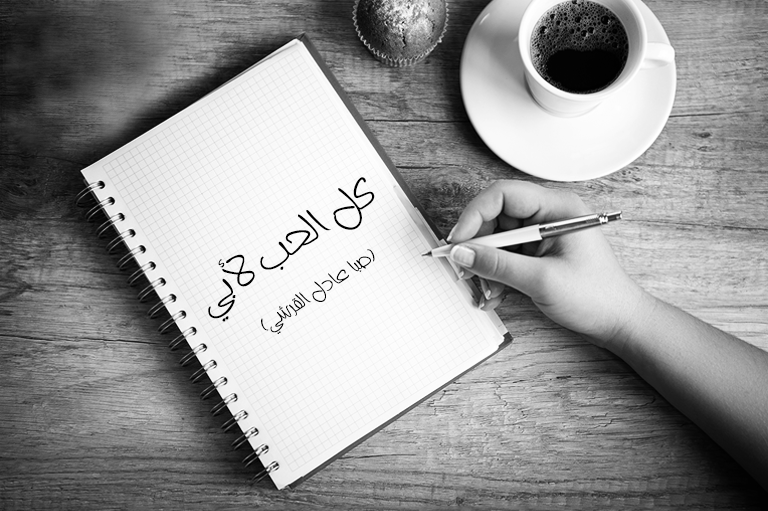 كل الحب لأبي
(صبا عادل القرشي)